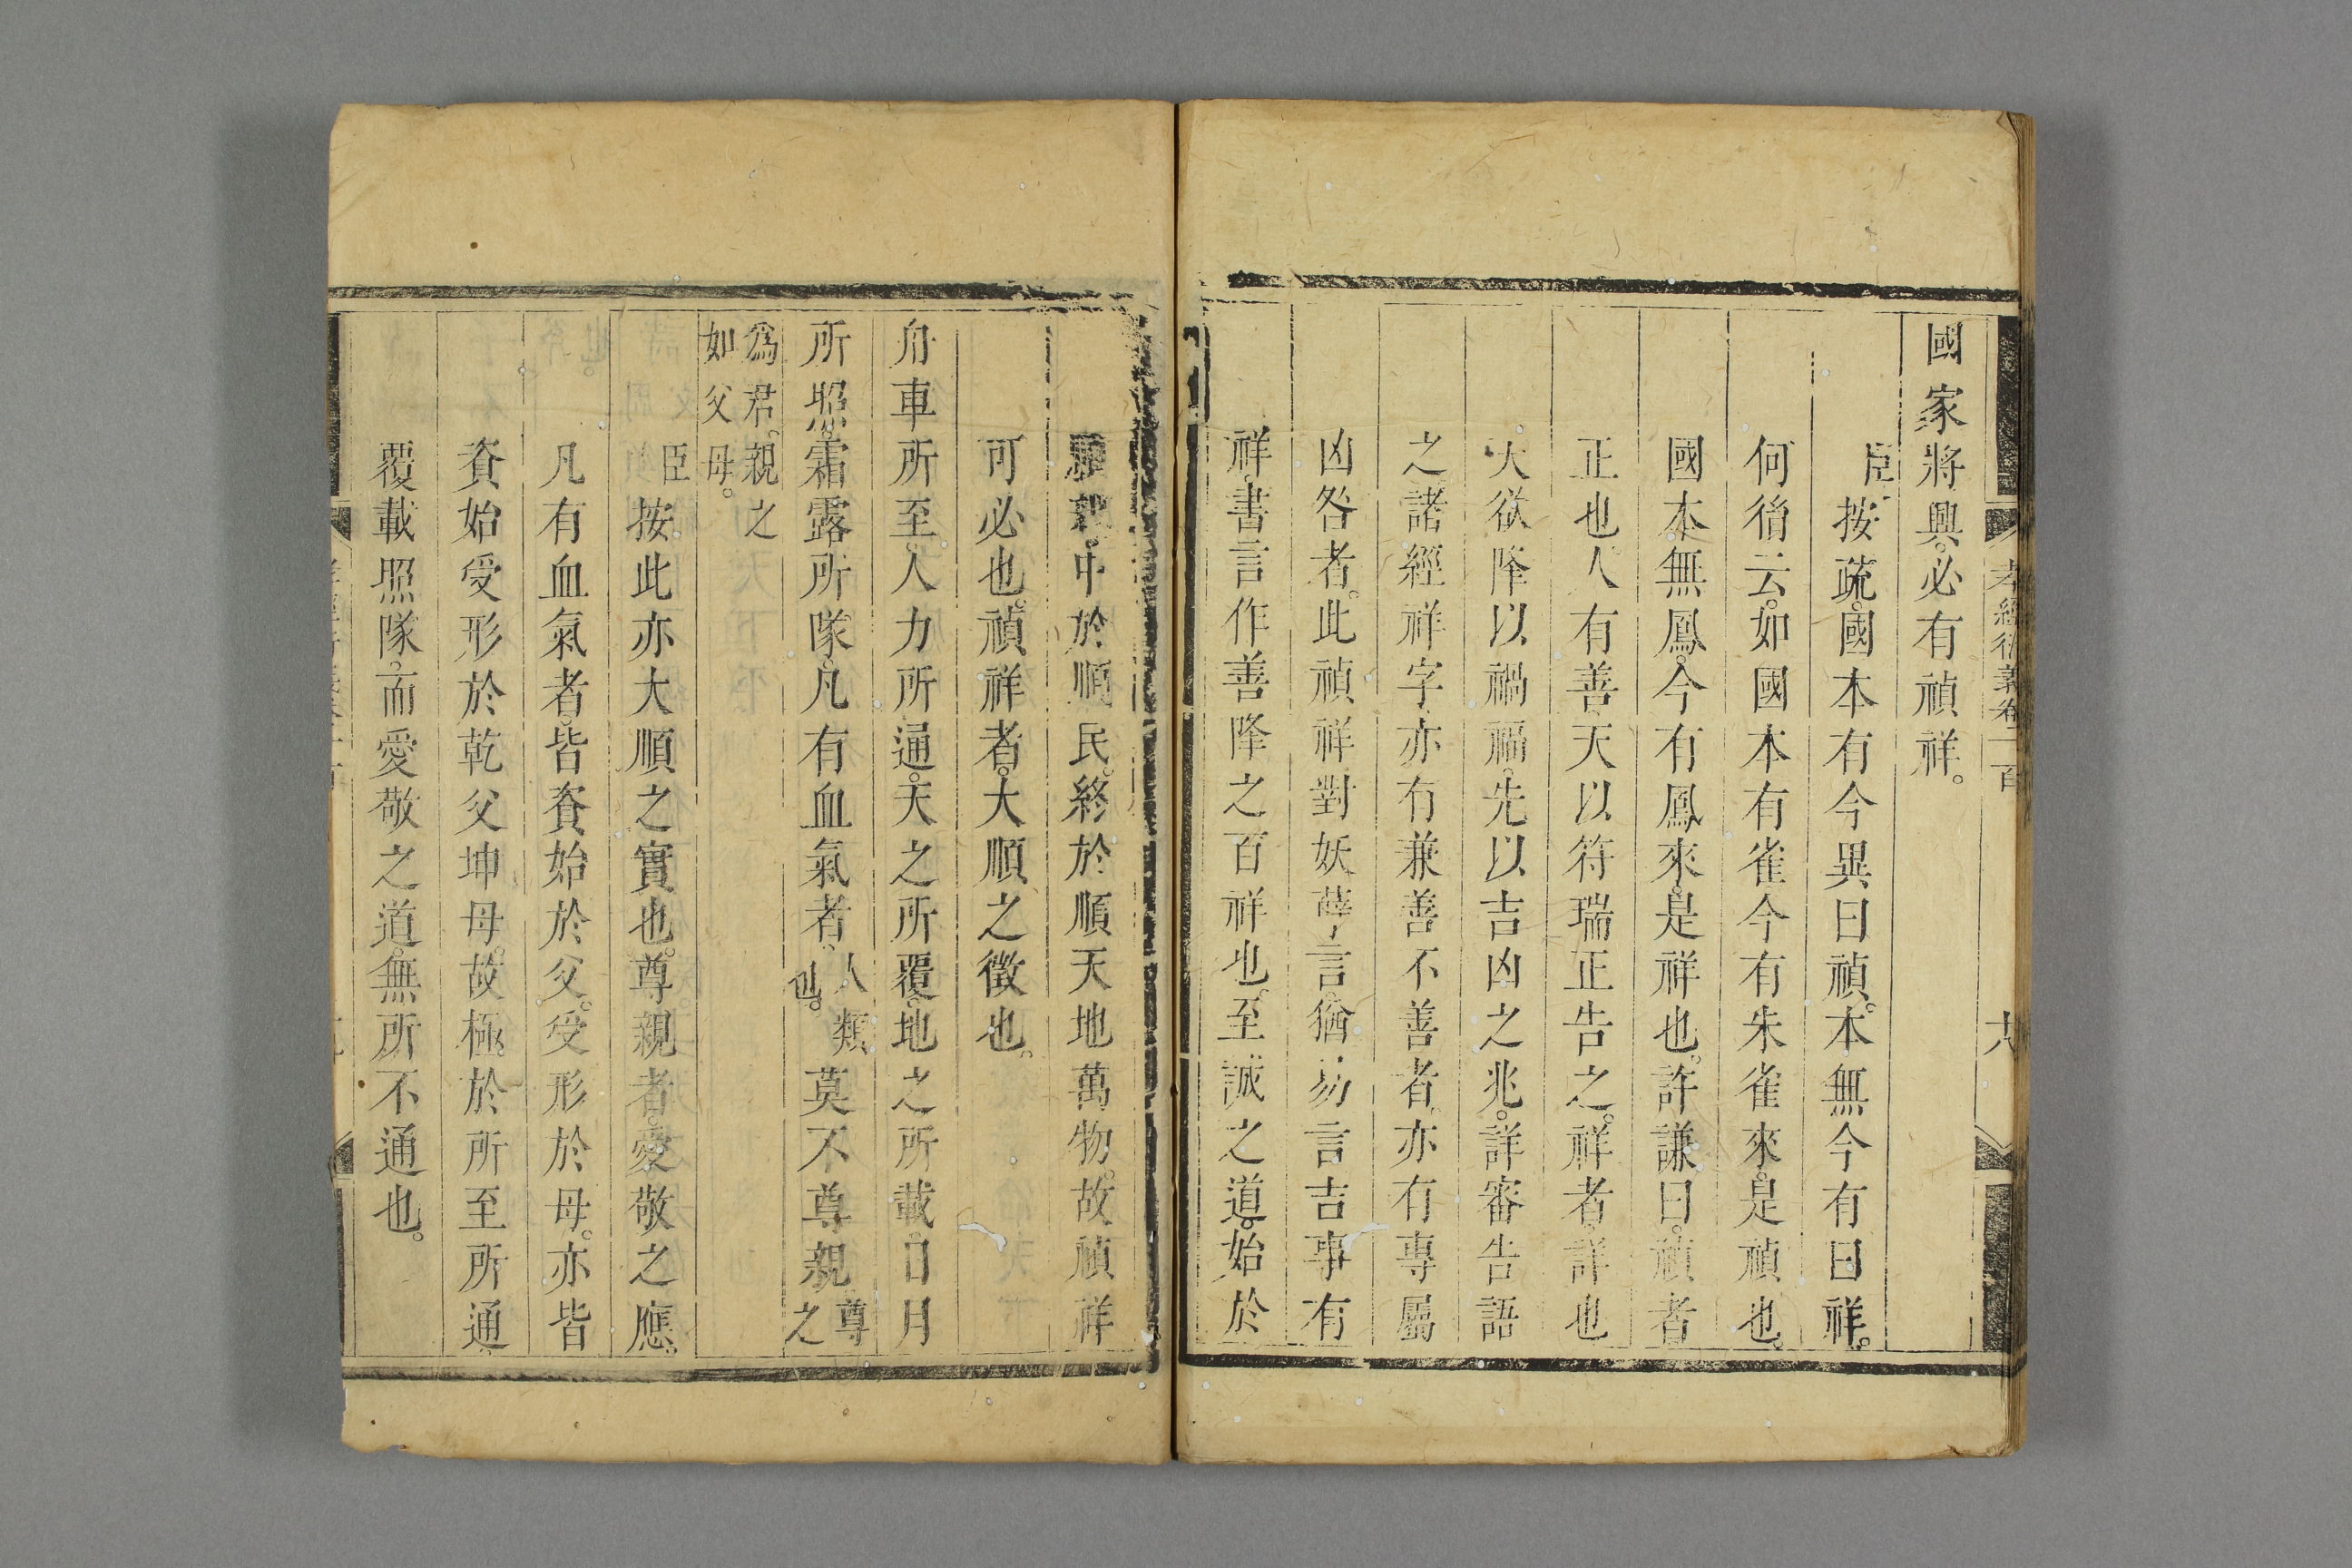 孝經衍義卷一百
六
國家將興。必有禎祥。
臣按疏。國本有今異曰禎。本無今有曰祥。
何循云。如國本有雀今有朱雀來。是禎也。
國本無鳳。今有鳳來。是祥也。許謙曰。禎者
正也。人有善。天以符瑞正告之。祥者。詳也
天欲降以禍福。先以吉凶之兆。詳審告語
之諸經祥字。亦有兼善不善者。亦有專屬
凶咎者。此禎祥對妖孽言。猶易言吉事有
祥。書言作善降之百祥也。至誠之道。始於
順親。中於順民。終於順天地萬物。故禎祥
可必也。禎祥者。大順之徵也。
舟車所至。人力所通。天之所覆。地之所載。日月
所照。霜露所隊。凡有血氣者。人類也。莫不尊親尊之
爲君。親之如父母。
臣按此亦大順之實也。尊親者。愛敬之應。
凡有血氣者。皆資始於父。受形於母。亦皆
資始受形於乾父坤母。故極於所至所通。
覆載照隊。而愛敬之道。無所不通也。